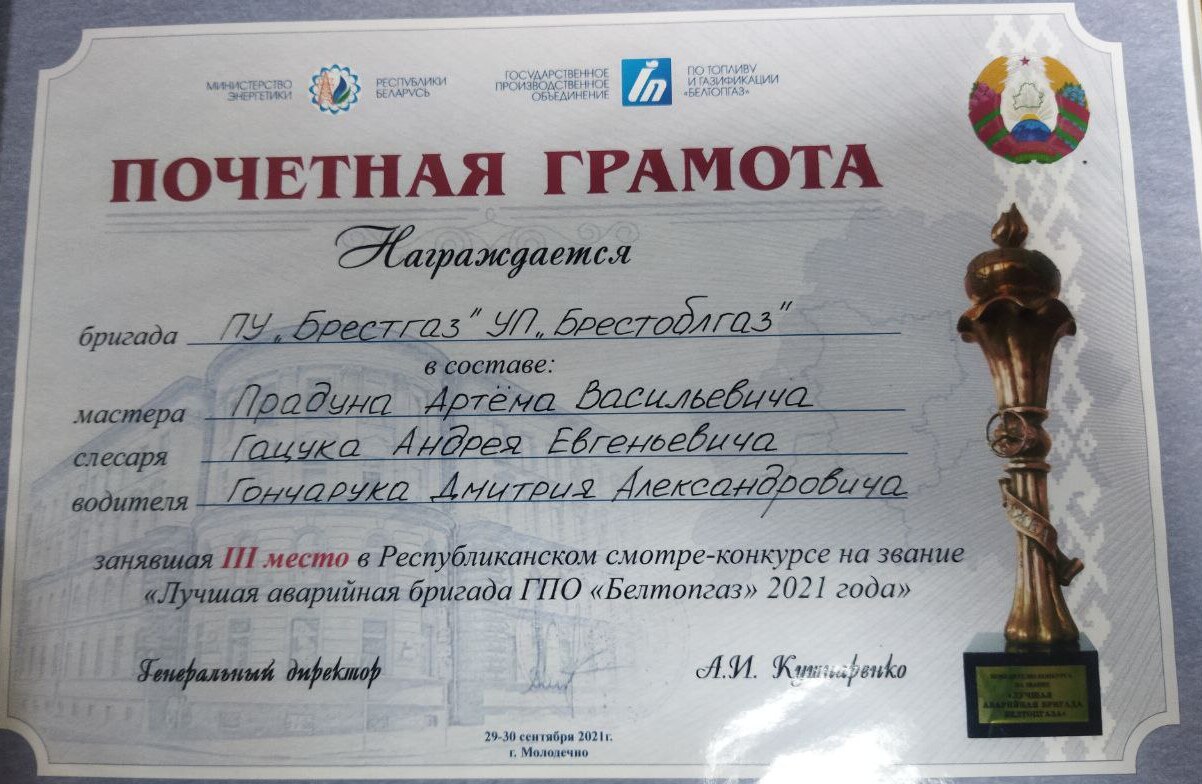 МИНИСТЕРСТВО
ЭНЕРГЕТИКИ
РЕСПУБЛИКИ
БЕЛАРУСЬ
ГОСУДАРСТВЕННОЕ
ПРОИЗВОДСТВЕННОЕ
ОБЪЕДИНЕНИЕ
ПО ТОПЛИВУ
И ГАЗИФИКАЦИИ
«БЕЛТОПГАЗ»
ПОЧЕТНАЯ ГРАМОТА
Награждается
бригада ПУ „Брестгаз" УП „Брестоблгаз"
в составе:
мастера Прадуна Артёма Васильевича
слесаря Гацука Андрея Евгеньевича
водителя Гончарука Дмитрия Александровича
занявшая III место в Республиканском смотре-конкурсе на звание
«Лучшая аварийная бригада ГПО «Белтопгаз» 2021 года»
Генеральный директор А.И. Кушнаренко
29-30 сентября 2021г.
г. Молодечно
НА ЗВАНИЕ
«ЛУЧШАЯ
АВАРИЙНАЯ БРИГАДА
БЕЛТОПГАЗА»